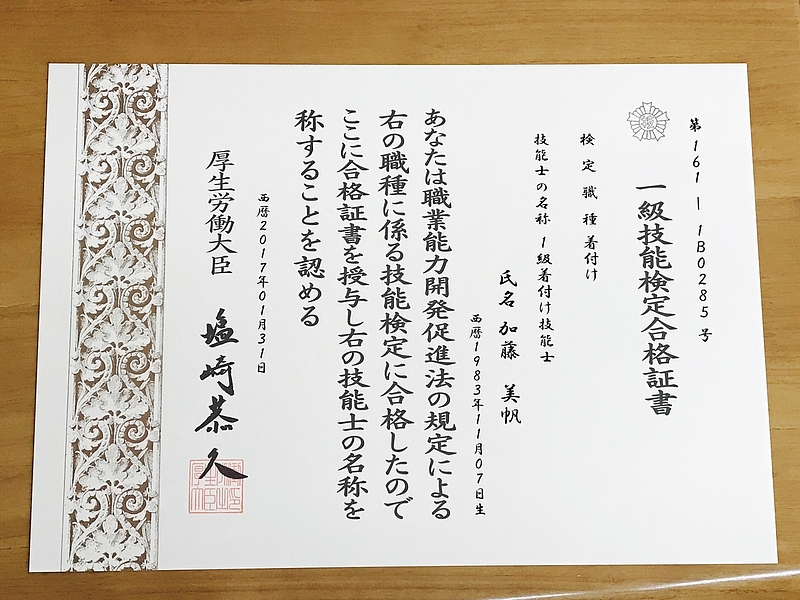 第161ー1B0285号
一級技能検定合格証書
検定職種 着付け
技能士の名称 1級着付け技能士
氏名 加藤 美帆
西暦1983年11月07日生
あなたは職業能力開発促進法の規定による
右の職種に係る技能検定に合格したので
ここに合格証書を授与し右の技能士の名称を
称することを認める
西暦2017年01月31日
厚生労働大臣 塩崎恭久